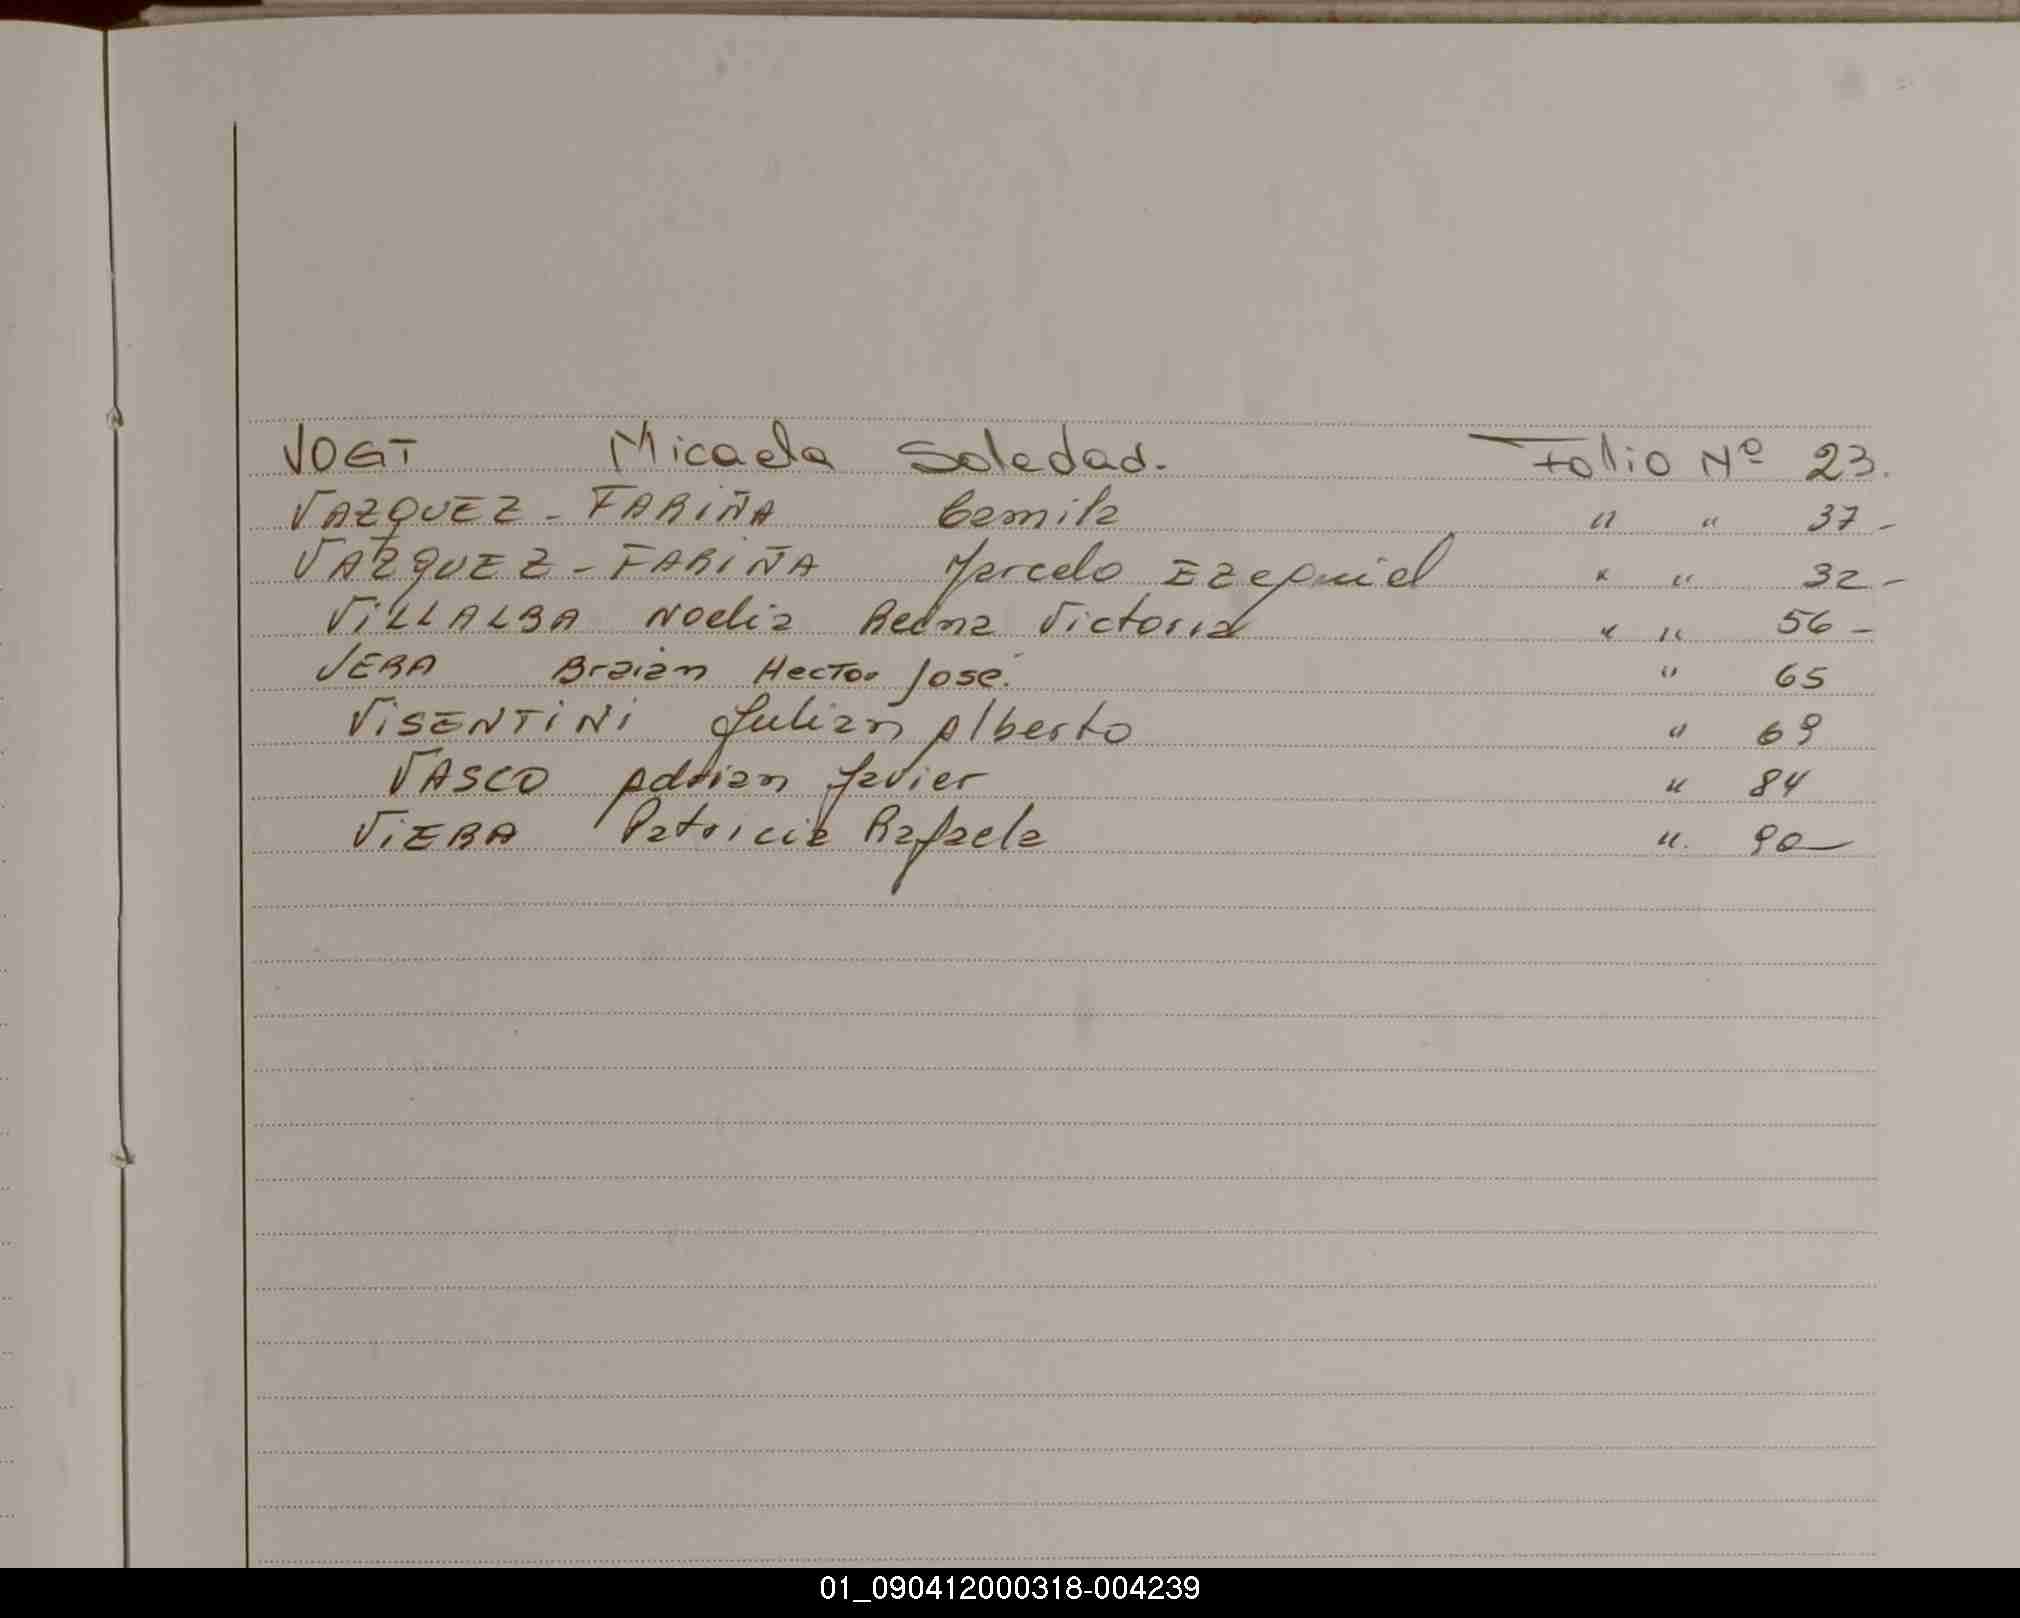 VOGT Micaela Soledad. Folio Nº 23.
VAZQUEZ - FARIÑA Camila " " 37 -
VAZQUEZ - FARIÑA Marcelo Ezequiel " " 32 -
VILLALBA Noelia Reina Victoria " " 56 -
VERA Braian Hector José. " 65
VISENTINI Julian Alberto " 69
VASCO Adrian Javier " 84
VIERA Patricia Rafaela ". 90 -
01_090412000318-004239